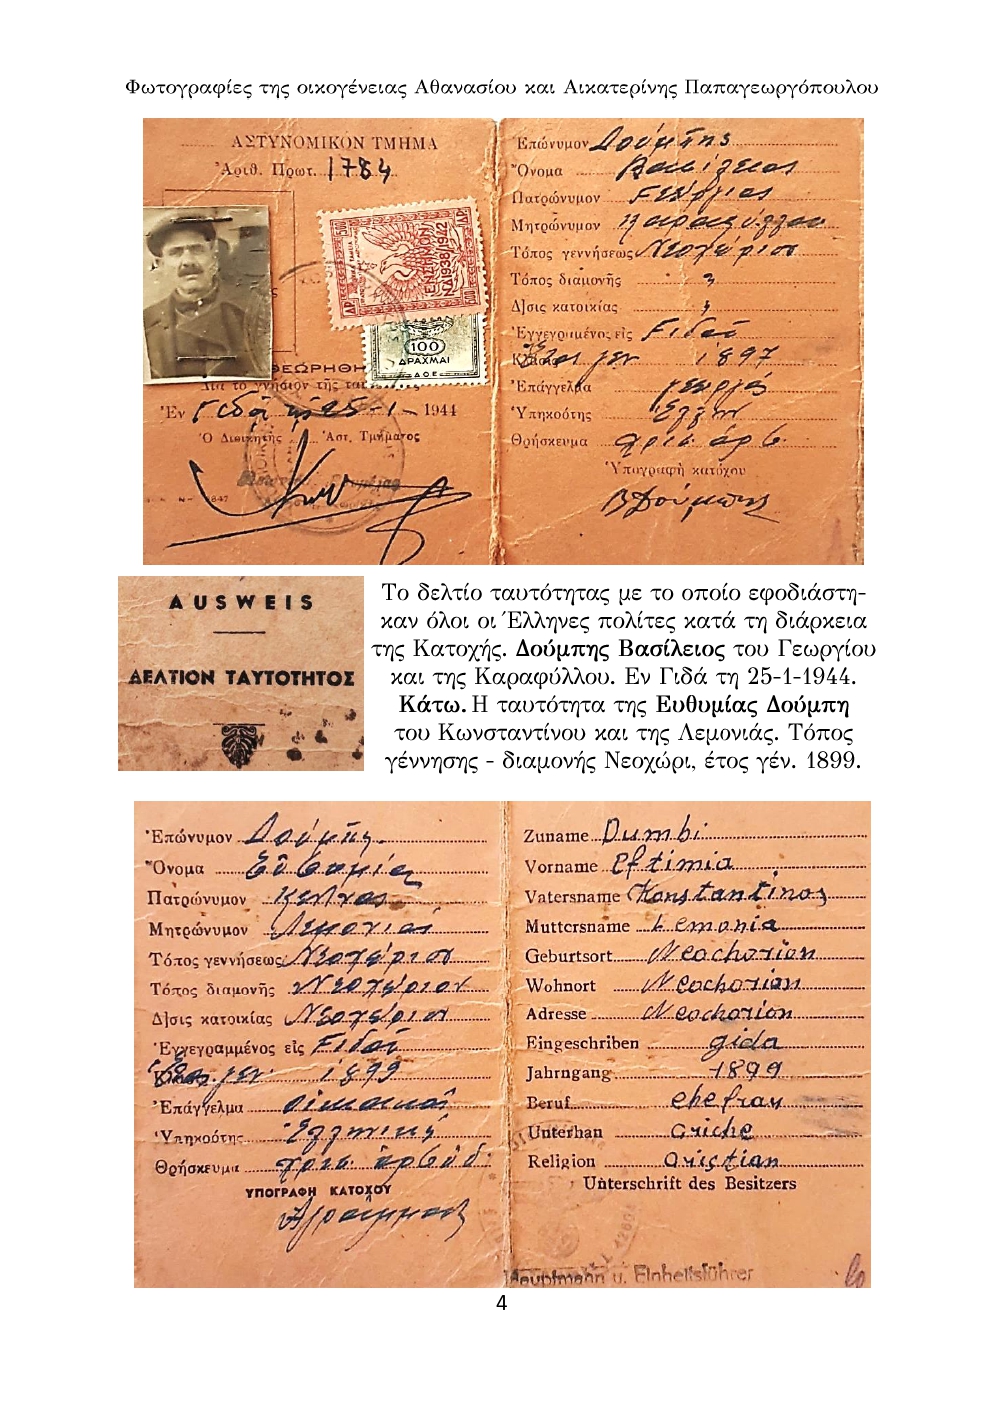 Φωτογραφίες της οικογένειας Αθανασίου και Αικατερίνης Παπαγεωργόπουλου
ΑΣΤΥΝΟΜΙΚΟΝ ΤΜΗΜΑ
Ἀριθ. Πρωτ. 1784
ΕΝΣΗΜΟΝ
Ν. 1938/1942
100
ΔΡΑΧΜΑΙ
ΘΕΩΡΗΘΗ
Διὰ τὸ γνήσιον τῆς
Ἐν Γιδᾷ τῇ 25-1-1944
Ὁ Διοικητὴς Ἀστ. Τμήματος
Ἐπώνυμον Δούμπης
Ὄνομα Βασίλειος
Πατρώνυμον Γεώργιος
Μητρώνυμον
Τόπος γεννήσεως Νεοχώριον
Τόπος διαμονῆς
Δ)σις κατοικίας
Ἐγγεγραμμένος εἰς Γιδᾶ
Ἔτος γεν 1897
Ἐπάγγελμα γεωργός
Ὑπηκοότης Ἕλλην
Θρήσκευμα χρισ. ὀρθ.
Ὑπογραφὴ κατόχου
Β Δούμπης
AUSWEIS
ΔΕΛΤΙΟΝ ΤΑΥΤΟΤΗΤΟΣ
Το δελτίο ταυτότητας με το οποίο εφοδιάστη-
καν όλοι οι Έλληνες πολίτες κατά τη διάρκεια
της Κατοχής. Δούμπης Βασίλειος του Γεωργίου
και της Καραφύλλου. Εν Γιδά τη 25-1-1944.
Κάτω. Η ταυτότητα της Ευθυμίας Δούμπη
του Κωνσταντίνου και της Λεμονιάς. Τόπος
γέννησης - διαμονής Νεοχώρι, έτος γέν. 1899.
Ἐπώνυμον Δούμπη
Ὄνομα Εὐθυμία
Πατρώνυμον Κων/νος
Μητρώνυμον Λεμονιά
Τόπος γεννήσεως Νεοχώριον
Τόπος διαμονῆς Νεοχώριον
Δ)σις κατοικίας Νεοχώριον
Ἐγγεγραμμένος εἰς Γιδᾶ
Ἔτος γεν. 1899
Ἐπάγγελμα οἰκιακά
Ὑπηκοότης Ἑλληνική
Θρήσκευμα χρισ. ὀρθόδ.
ΥΠΟΓΡΑΦΗ ΚΑΤΟΧΟΥ
Ἀγράμματος
Zuname Dumbi
Vorname Eftimia
Vatersname Konstantinos
Muttersname Lemonia
Geburtsort Neochorion
Wohnort Neochorion
Adresse Neochorion
Eingeschriben gida
Jahrngang 1899
Beruf ehefrau
Unterhan Griche
Religion Cristian
Unterschrift des Besitzers
Hauptmann u. Einheitsführer
4